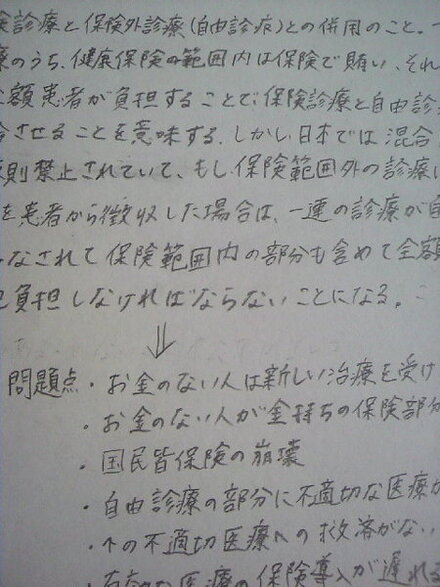 険診療と保険外診療(自由診療)との併用のこと。
療のうち、健康保険の範囲内は保険で賄い、それ
全額患者が負担することで、保険診療と自由診
合させることを意味する。しかし、日本では混合
原則禁止されていて、もし、保険範囲外の診療に
を患者から徴収した場合は、一連の診療が自
みなされて保険範囲内の部分も含めて全額
己負担しなければならないことになる。
⇓
問題点・お金のない人は新しい治療を受け
・お金のない人が金持ちの保険部分
・国民皆保険の崩壊
・自由診療の部分に不適切な医療が
・の不適切医療への救済がない
な医療の保険導入が遅れる